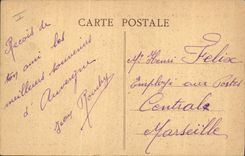 CARTE POSTALE
Reçois de
ton ami les
meilleurs souvenirs
d'Auvergne
Jean
Mr Henri Felix
Employé aux Postes
Centrale
Marseille